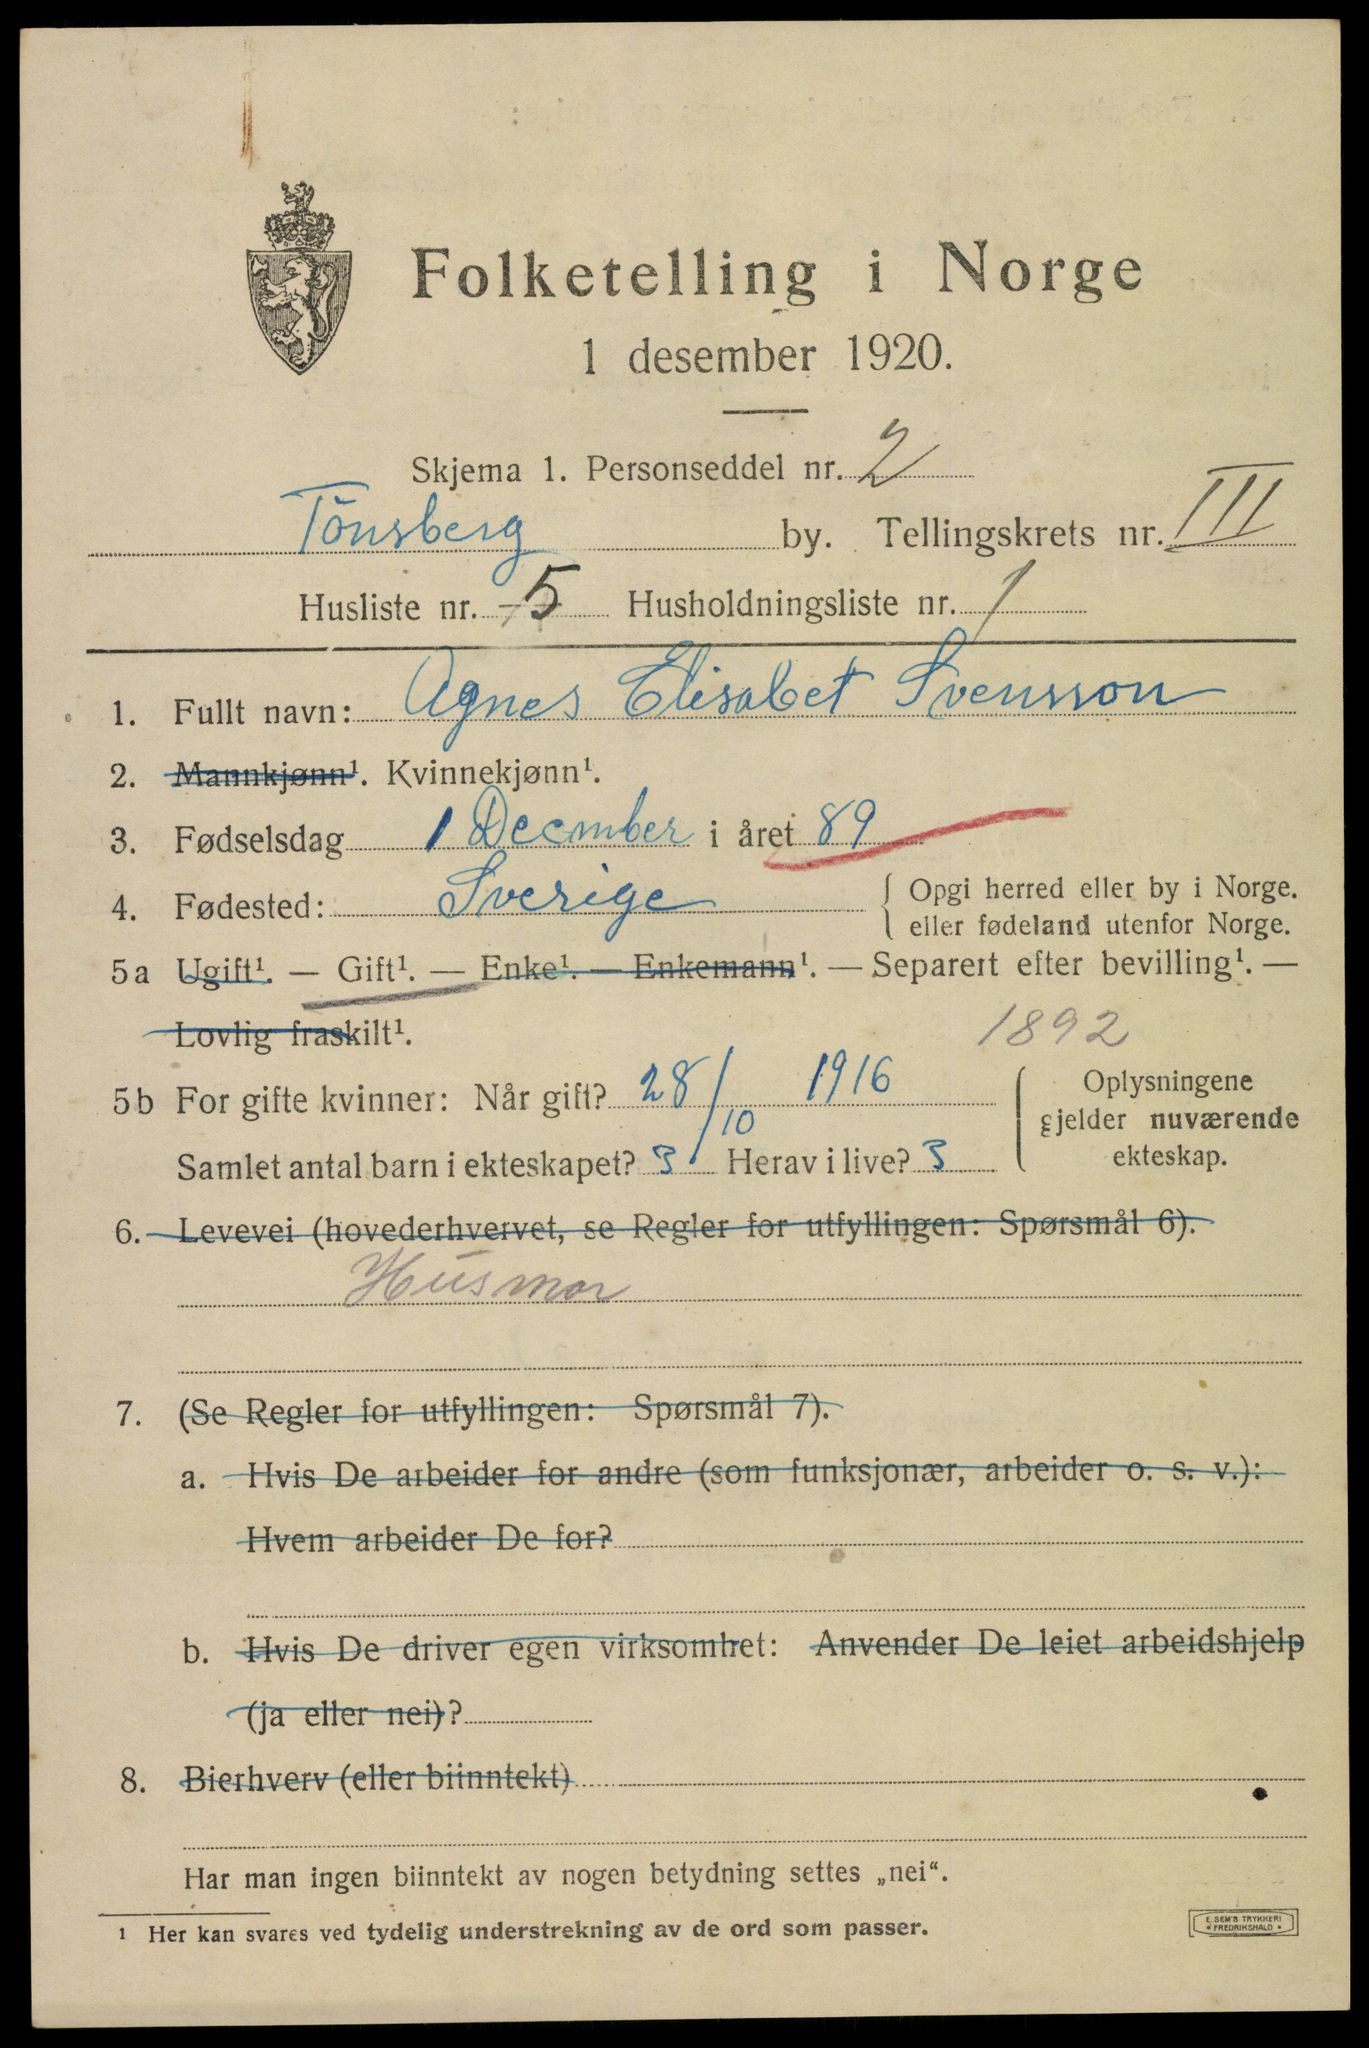 Folketelling i Norge
1 desember 1920.
Skjema 1. Personseddel nr. 2
Tönsberg by. Tellingskrets nr. III
Husliste nr. 5 Husholdningsliste nr. 1
1. Fullt navn: Agnes Elisabet Svensson
2. Mannkjønn¹. Kvinnekjønn¹.
3. Fødselsdag 1 December i året 89
4. Fødested: Sverige { Opgi herred eller by i Norge.
eller fødeland utenfor Norge.
5a Ugift¹. — Gift¹. — Enke¹. — Enkemann¹. — Separert efter bevilling¹. —
Lovlig fraskilt¹.
1892
5b For gifte kvinner: Når gift? 28/10 1916
Samlet antal barn i ekteskapet? 3. Herav i live? 3
Oplysningene
gjelder nuværende
ekteskap.
6. Levevei (hovederhvervet, se Regler for utfyllingen: Spørsmål 6).
Husmor
7. (Se Regler for utfyllingen: Spørsmål 7).
a. Hvis De arbeider for andre (som funksjonær, arbeider o. s. v.):
Hvem arbeider De for?
b. Hvis De driver egen virksomhet: Anvender De leiet arbeidshjelp
(ja eller nei)?
8. Bierhverv (eller biinntekt)
Har man ingen biinntekt av nogen betydning settes „nei“.
¹ Her kan svares ved tydelig understrekning av de ord som passer.
E. SEM'S TRYKKERI
• FREDRIKSHALD •